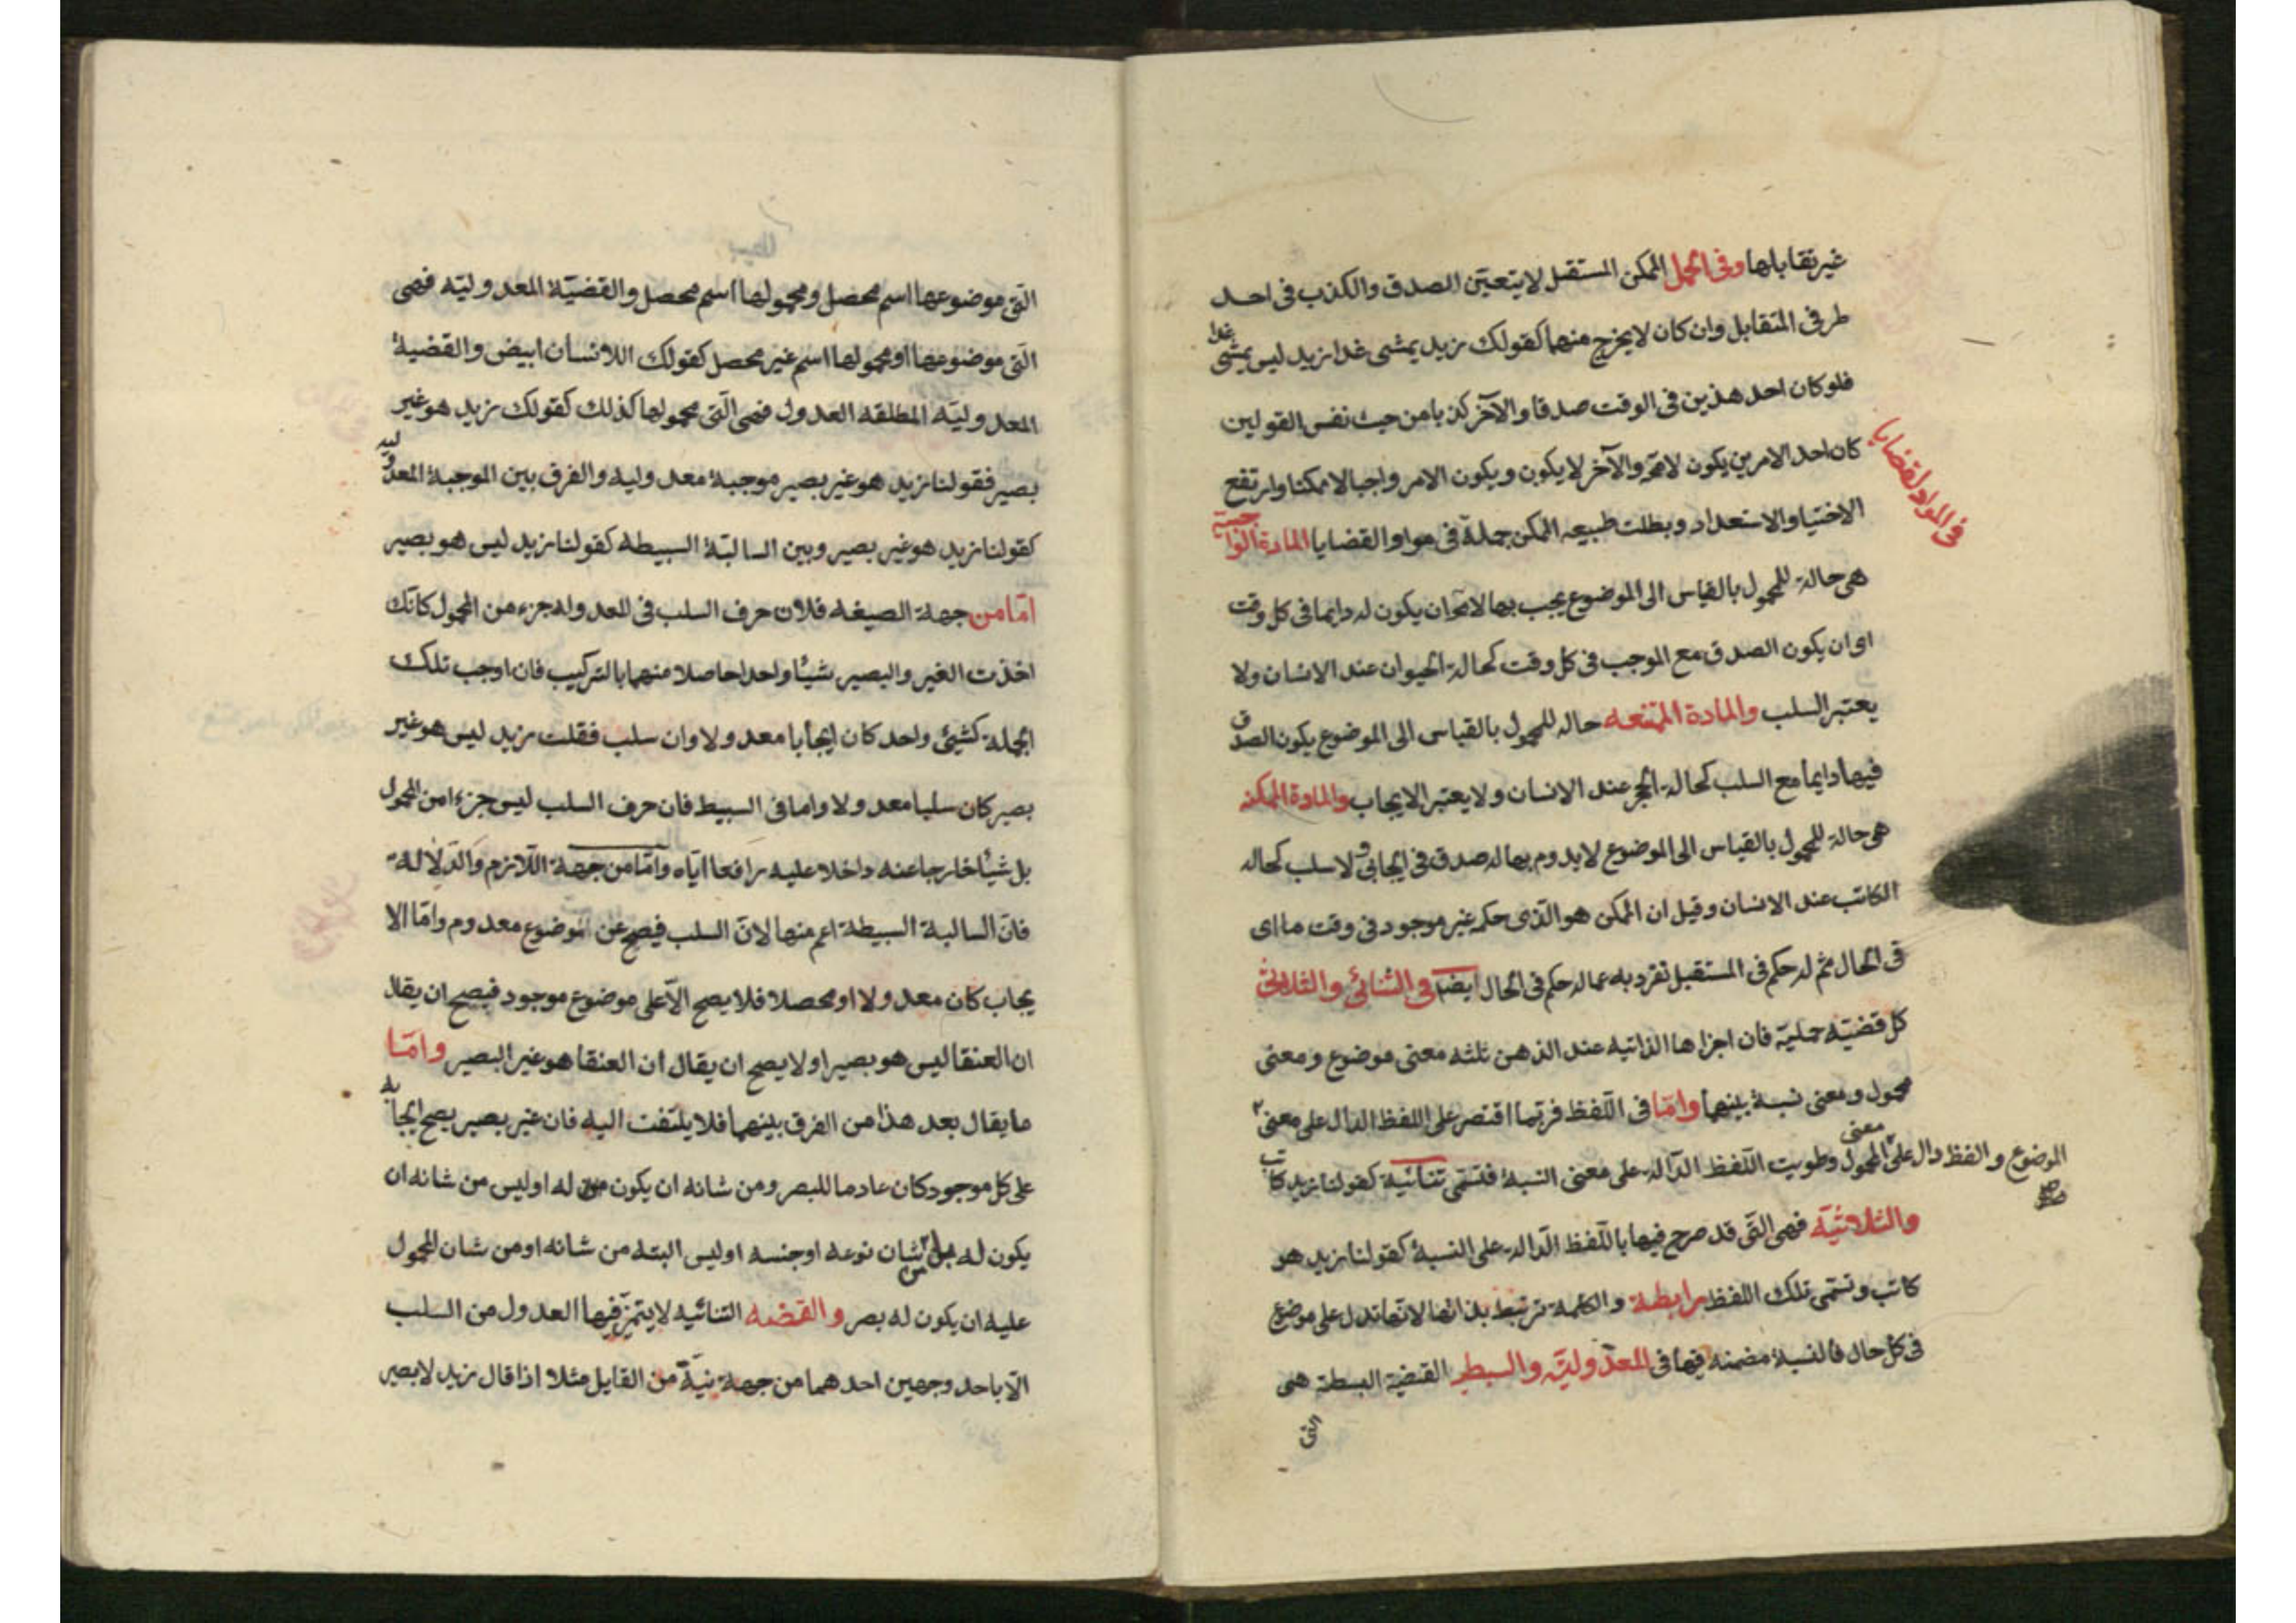 غير تقابلها وفى الحمل الممكن المستقبل لا يتعيّن الصدق والكذب فى احد
طرفى المتقابل وان كان لا يخرج منهما كقولك زيد يمشى غدا زيد ليس يمشى غدا
فلو كان احد هذين فى الوقت صدقا والآخر كذبا من حيث نفس القولين
كان احد الامرين يكون لامحة والآخر لا يكون ويكون الامر واجبا لا ممكنا وارتفع
فى المواد لقضايا
الاختيا والاستعداد وبطلت طبيعه الممكن جملة فى مواو القضايا المادة الواجبة
هى حالة للمحمول بالقياس الى الموضوع يجب بها لامحة ان يكون له دايما فى كل وقت
اى ان يكون الصدق مع الموجب فى كل وقت كحالة الحيوان عند الانسان ولا
يعتبر السلب والمادة الممتنعه حاله للمحمول بالقياس الى الموضوع يكون الصدق
فيها دايما مع السلب كحالة الحجر عند الانسان ولا يعتبر الايجاب والمادة الممكنه
هى حالة للمحمول بالقياس الى الموضوع لا يدوم بها له صدق فى ايجاب ولا سلب كحاله
الكاتب عند الانسان وقيل ان الممكن هو الذى حكمه غير موجود فى وقت ما اى
فى الحال ثم له حكم فى المستقبل تفرد به عما له حكم فى الحال ايضا فى الثنائى والثلاثى
كل قضيّه حمليّة فان اجزاها الذاتيه عند الذهن ثلثه معنى موضوع ومعنى
محمول ومعنى نسبة بينهما وامّا فى اللّفظ فربّما اقتصر على اللفظ الدال على معنى
الموضوع والفظ دال على معنى المحمول وطويت اللّفظ الدّاله على معنى النسبة فتسمّى ثنائية كقولنا زيد كاتب
صح
والثلاثيّة فهى التّى قد صرح فيها باللّفظ الدّالة على النسبة كقولنا زيد هو
كاتب وتسمّى تلك اللفظ برابطة والكلمة ترتبط بذاتها لانّها تدل على موضوع
فى كل حال فالنسبة مضمنه فيها فى المعدوليّة والبسيط القضية البسطة هى
التى
التّى موضوعها اسم محصل ومحمولها اسم محصل والقضيّة المعدوليّه فهى
التّى موضوعها او محمولها اسم غير محصل كقولك اللاانسان ابيض والقضية
المعدوليّه المطلقه العدول فهى التّى محمولها كذلك كقولك زيد هو غير
بصير فقولنا زيد هو غير بصير موجبة معدوليه والفرق بين الموجبة المعدوليه
كقولنا زيد هو غير بصير وبين السالبّة البسيطه كقولنا زيد ليس هو بصير
امّا من جهة الصيغه فلان حرف السلب فى المعدوله جزء من المحمول كانّك
اخذت الغير والبصير شيئا واحدا حاصلا منهما بالتركيب فان اوجب تلك
الجملة كشيئى واحد كان ايجابا معدولا وان سلب فقلت زيد ليس هو غير
بصير كان سلبا معدولا واما فى البسيط فان حرف السلب ليس جزءا من المحمول
بل شيئا خارجا عنه داخلا عليه رافعا ايّاه وامّا من جهة اللّازم والدّلالة
فانّ السالبة البسيطة اعم منها لانّ السلب فيصح عن الموضوع معدوم وامّا الا
يجاب كان معدولا او محصلا فلا يصح الّا على موضوع موجود فيصح ان يقال
ان العنقا ليس هو بصيرا ولا يصح ان يقال ان العنقا هو غير البصير وامّا
ما يقال بعد هذا من الفرق بينهما فلا يلتفت اليه فان غير بصير يصح ايجابه
على كل موجود كان عادما للبصر ومن شانه ان يكون له او ليس من شانه ان
يكون له بل من شان نوعه او جنسه او ليس البته من شانه او من شان المحمول
عليه ان يكون له بصر والقضيه الثنائيه لا يتميّز فيها العدول من السلب
الّا باحد وجهين احدهما من جهة نيّة من القايل مثلا اذا قال زيد لابصير